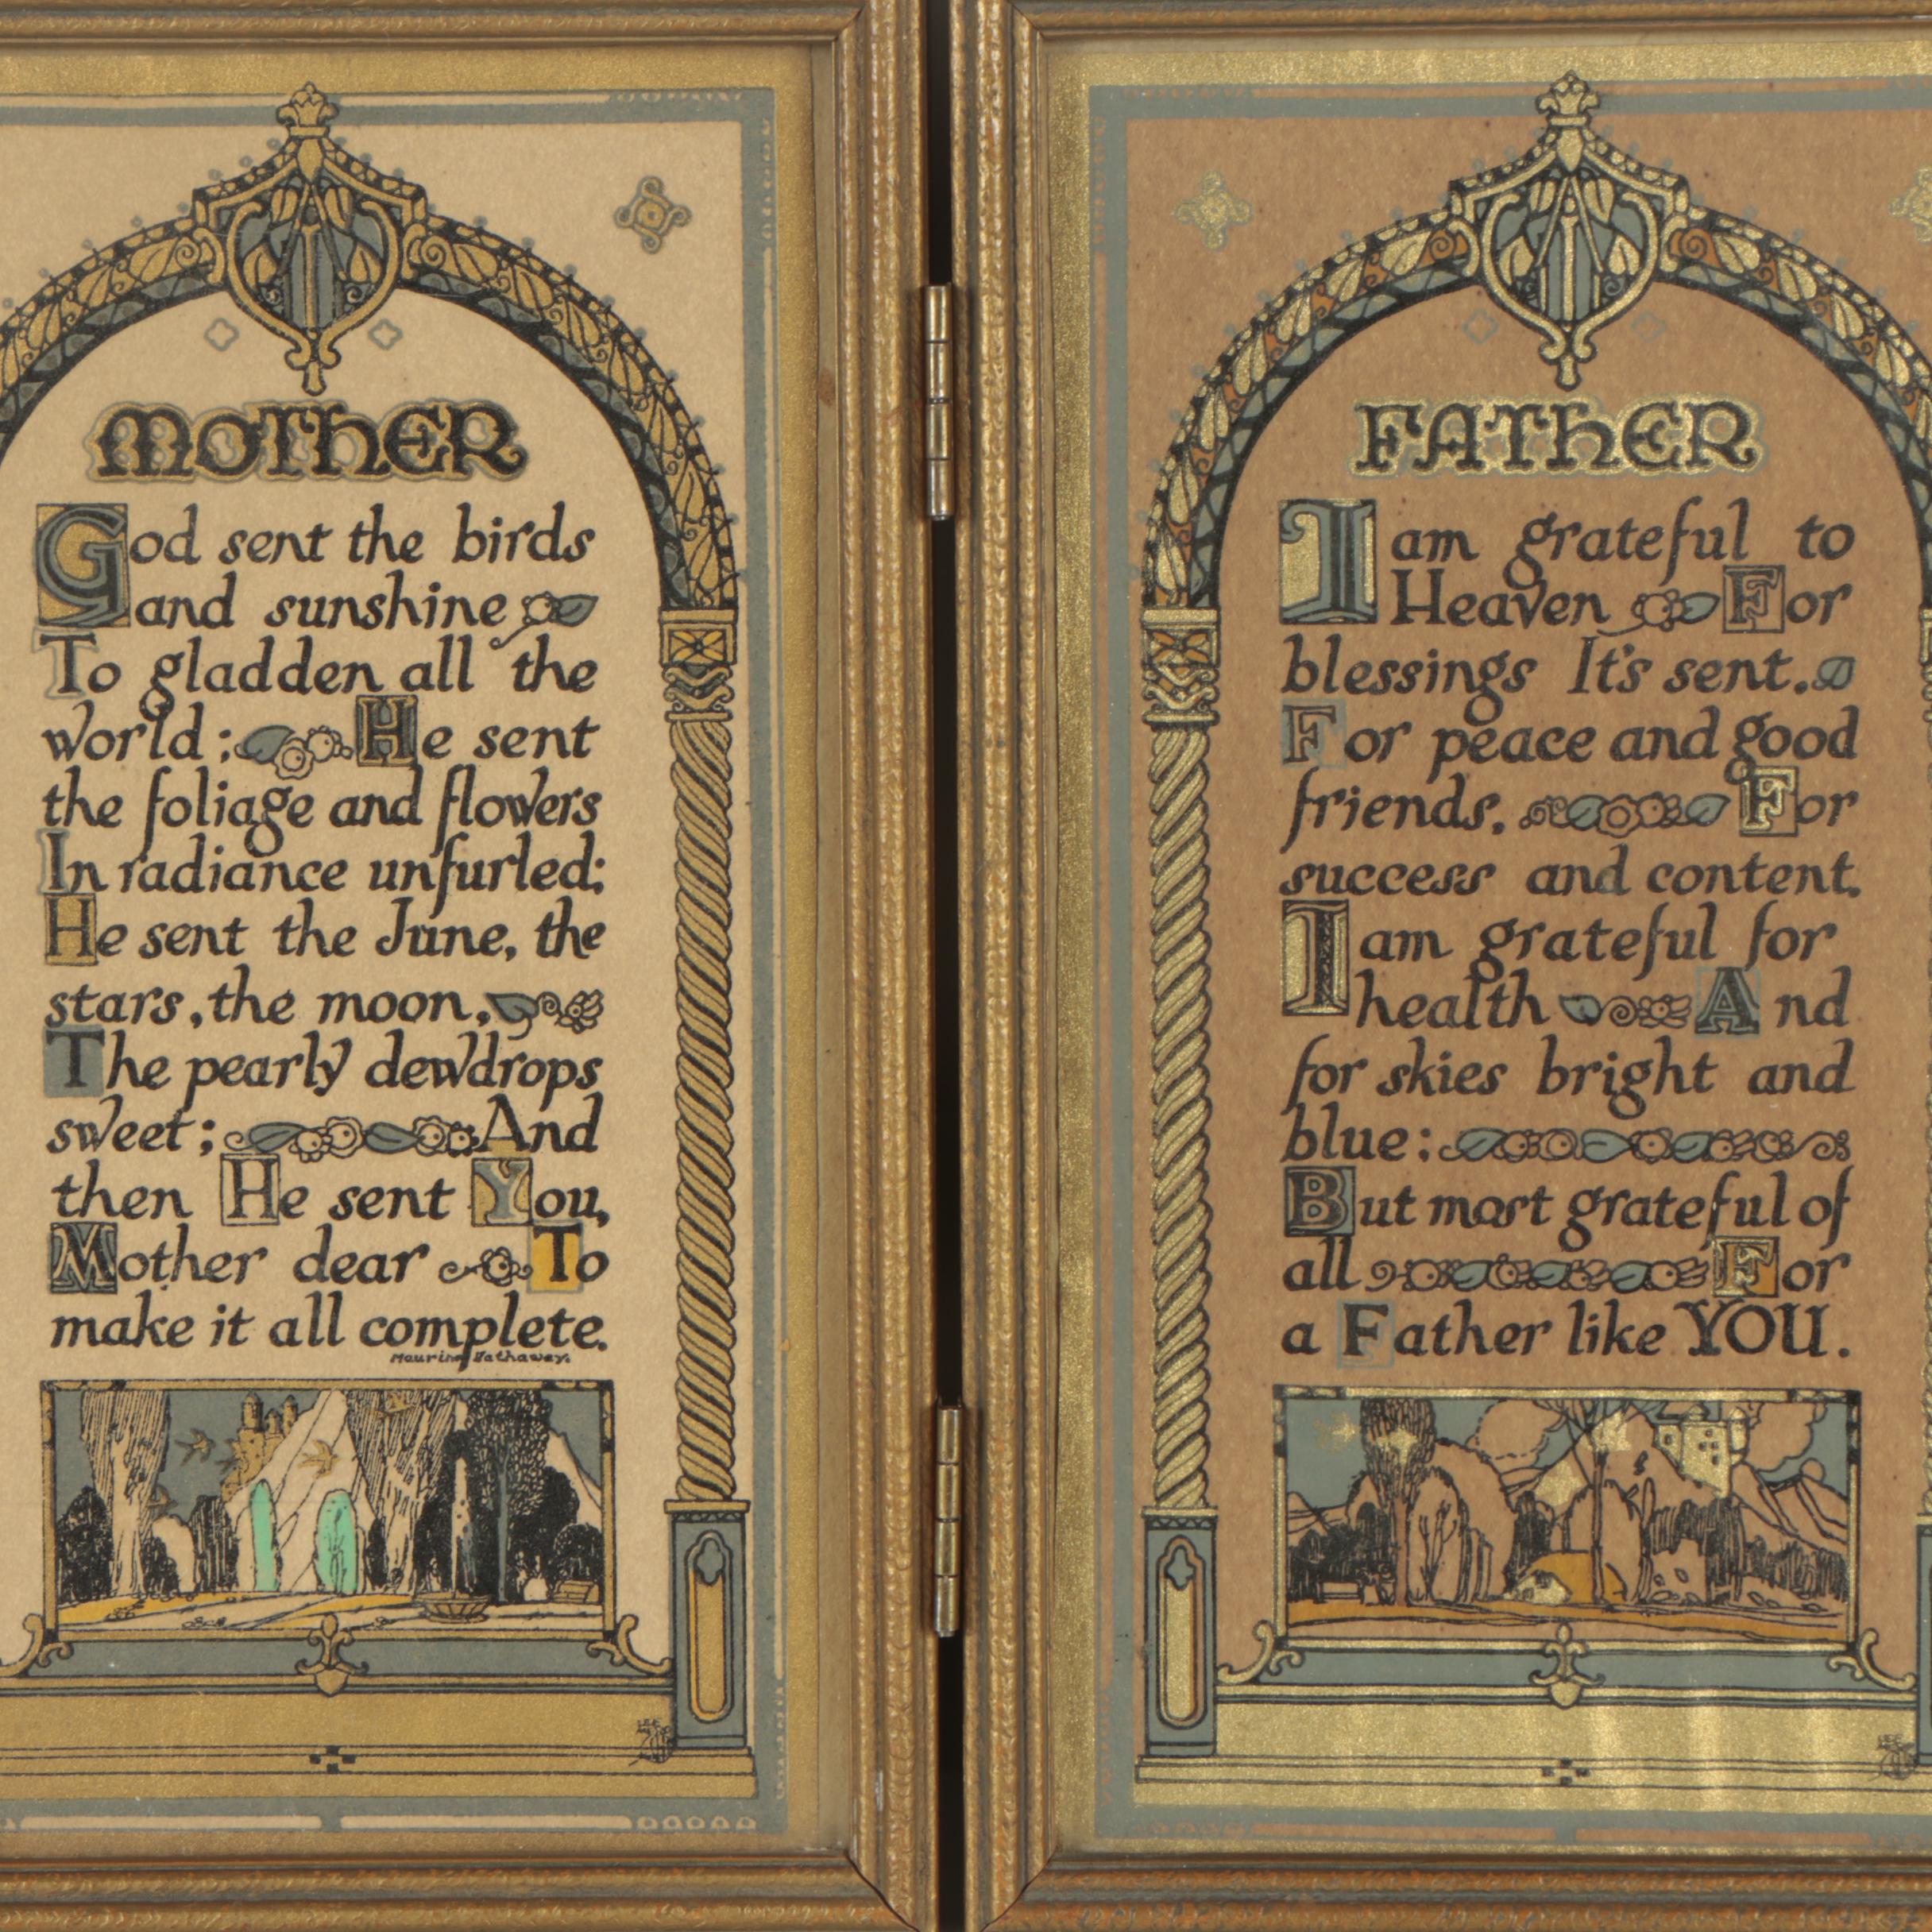 MOTHER
God sent the birds
and sunshine
To gladden all the
world; He sent
the foliage and flowers
In radiance unfurled;
He sent the June, the
stars, the moon,
The pearly dewdrops
sweet; And
then He sent You,
Mother dear To
make it all complete.
Maurine Hathaway.
FATHER
I am grateful to
Heaven For
blessings It's sent.
For peace and good
friends, For
success and content,
I am grateful for
health And
for skies bright and
blue:
But most grateful of
all For
a Father like YOU.